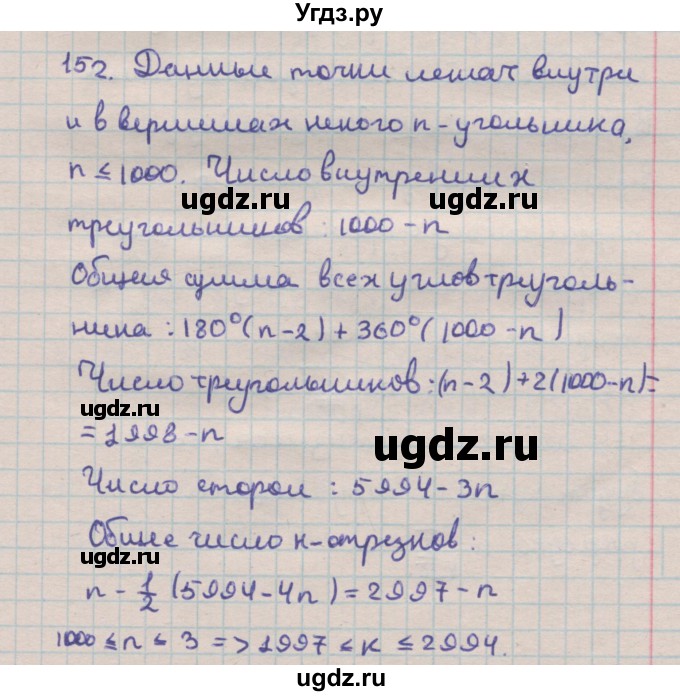 Угдз.ру
152. Данные точки лежат внутри
и в вершинах некого n-угольника,
n ≤ 1000. Число внутренних
ugdz.ru ugdz.ru
треугольников: 1000 - n
Общая сумма всех углов треуголь-
ника: 180°(n-2) + 360°(1000-n)
Число треугольников: (n-2)+2(1000-n)=
ugdz.ru
= 1998 - n
ugdz.ru
Число сторон: 5994 - 3n
Общее число к-отрезков:
ugdz.ru
n - 1/2 (5994 - 4n) = 2997 - n
1000 ≤ n ≤ 3 => 1997 ≤ k ≤ 2994.
ugdz.ru ugdz.ru